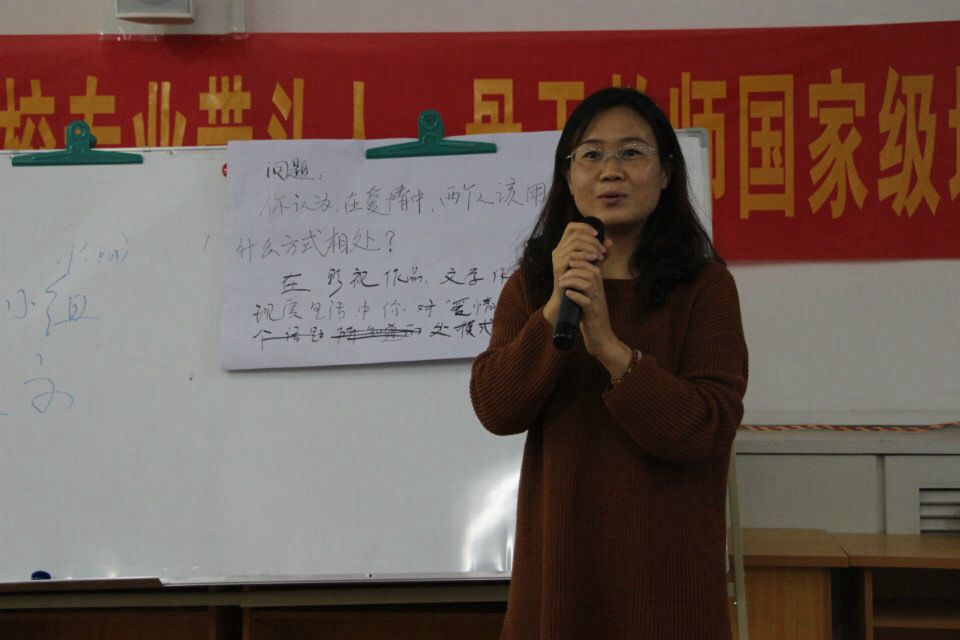 校专业带头人、骨干教师国家级培
问题：
你认为，在爱情中，两个人该用
什么方式相处？
在影视作品，文学作
现实生活中你对“爱情
个话题 处模式
小组